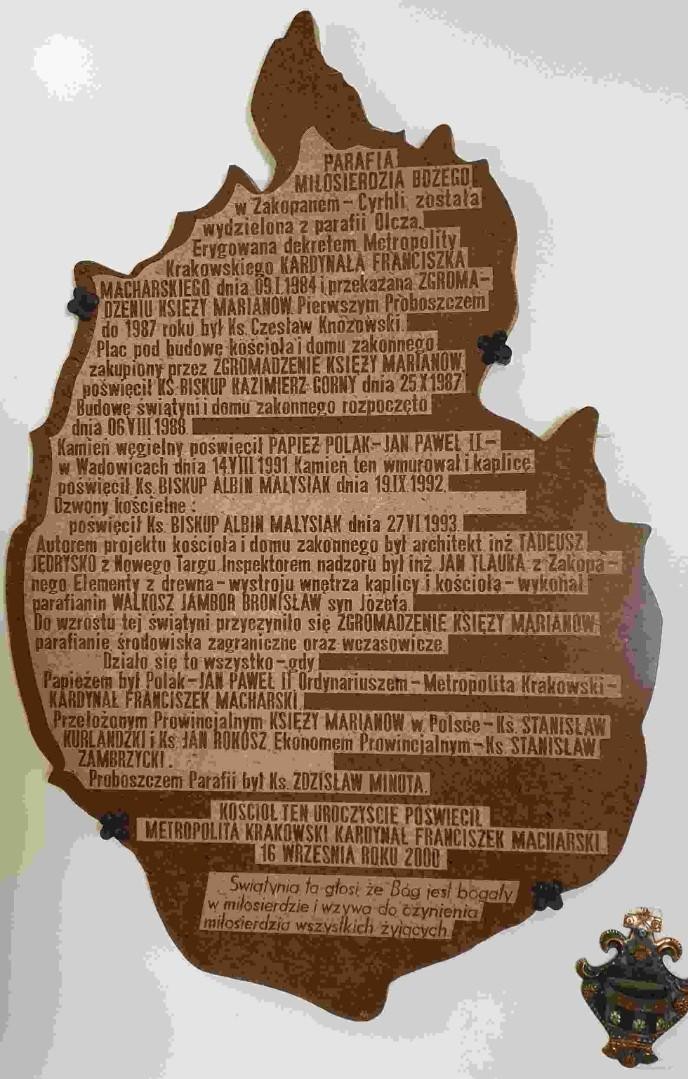 PARAFIA
MIŁOSIERDZIA BOŻEGO
w Zakopanem - Cyrhli, została
wydzielona z parafii Olcza.
Erygowana dekretem Metropolity
Krakowskiego KARDYNAŁA FRANCISZKA
MACHARSKIEGO dnia 09.I.1984 i przekazana ZGROMA-
DZENIU KSIĘŻY MARIANÓW. Pierwszym Proboszczem
do 1987 roku był Ks. Czesław Knozowski.
Plac pod budowę kościoła i domu zakonnego
zakupiony przez ZGROMADZENIE KSIĘŻY MARIANÓW,
poświęcił KS. BISKUP KAZIMIERZ GÓRNY dnia 25.X.1987
Budowę świątyni i domu zakonnego rozpoczęto
dnia 06.VIII.1988
Kamień węgielny poświęcił PAPIEŻ POLAK - JAN PAWEŁ II -
w Wadowicach dnia 14.VIII.1991 Kamień ten wmurował i kaplicę
poświęcił Ks. BISKUP ALBIN MAŁYSIAK dnia 19.IX.1992.
Dzwony kościelne :
poświęcił Ks. BISKUP ALBIN MAŁYSIAK dnia 27.VI.1993.
Autorem projektu kościoła i domu zakonnego był architekt inż. TADEUSZ
JĘDRYSKO z Nowego Targu. Inspektorem nadzoru był inż. JAN TLAUKA z Zakopa-
nego Elementy z drewna - wystroju wnętrza kaplicy i kościoła - wykonał
parafianin WALKOSZ JAMBOR BRONISŁAW syn Józefa.
Do wzrostu tej świątyni przyczyniło się ZGROMADZENIE KSIĘŻY MARIANÓW,
parafianie, środowiska zagraniczne oraz wczasowicze.
Działo się to wszystko - gdy
Papieżem był Polak - JAN PAWEŁ II Ordynariuszem - Metropolita Krakowski -
KARDYNAŁ FRANCISZEK MACHARSKI
Przełożonym Prowincjalnym KSIĘŻY MARIANÓW w Polsce - Ks. STANISŁAW
KURLANDZKI i Ks. JAN ROKOSZ Ekonomem Prowincjalnym - Ks. STANISŁAW
ZAMBRZYCKI.
Proboszczem Parafii był Ks. ZDZISŁAW MINOTA.
KOŚCIÓŁ TEN UROCZYŚCIE POŚWIĘCIŁ
METROPOLITA KRAKOWSKI KARDYNAŁ FRANCISZEK MACHARSKI.
16 WRZEŚNIA ROKU 2000
Świątynia ta głosi, że Bóg jest bogaty
w miłosierdzie i wzywa do czynienia
miłosierdzia wszystkich żyjących.